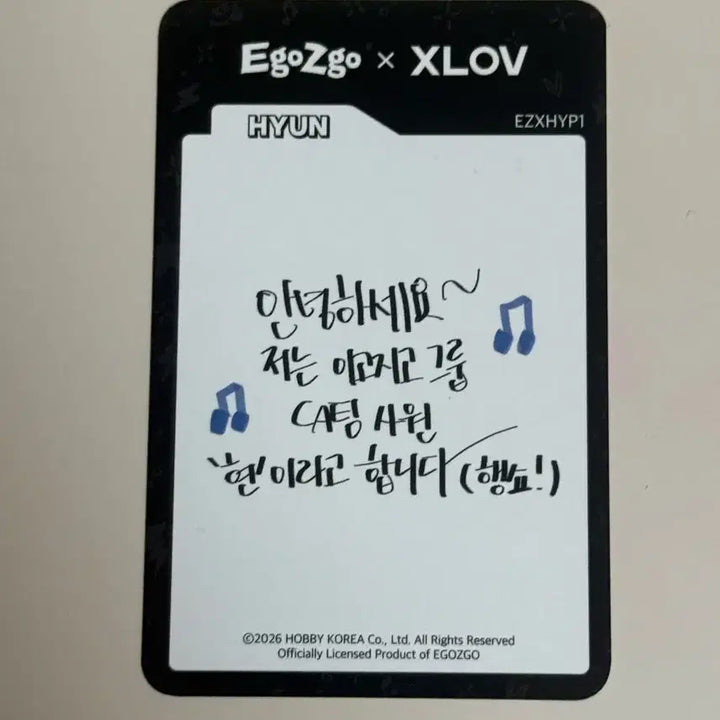 EgoZgo × XLOV
HYUN
EZXHYP1
안녕하세요~
저는 이고지고 그룹
CA팅 사원
'현'이라고 합니다 (행쇼!)
©2026 HOBBY KOREA Co., Ltd. All Rights Reserved
Officially Licensed Product of EGOZGO